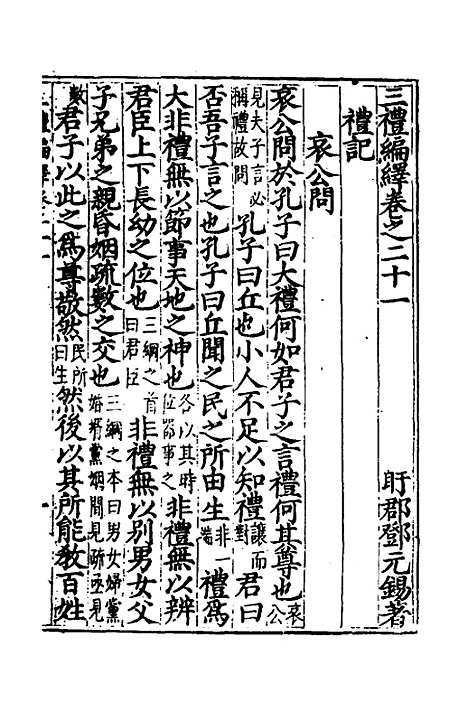 三禮編繹卷之二十一 盱郡鄧元錫著
禮記
哀公問
哀公問於孔子曰大禮何如君子之言禮何其尊也哀公
見夫子言必稱禮故問孔子曰丘也小人不足以知禮讓而對君曰
否吾子言之也孔子曰丘聞之民之所由生非一端禮爲
大非禮無以節事天地之神也各以其時位器事之非禮無以辨
君臣上下長幼之位也三綱之首曰君臣非禮無以別男女父
子兄弟之親昏姻疏數之交也三綱之本曰男女婦黨婚壻黨姻間見疏亟見
數君子以此之爲尊敬然民所曰生然後以其所能教百姓
三禮編繹卷二十一 一